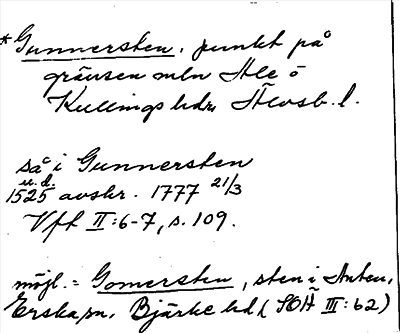 *Gunnersten, punkt på
gränsen mln Ale o
Kullings hdr, Älvsb. l.
så i Gunnersten
u. d.
1525 avskr. 1777 21/3
Vft II:6-7, s. 109.
möjl. = Gomersten, sten i Anten,
Erska sn, Bjärke hd (SOÄ III:62)